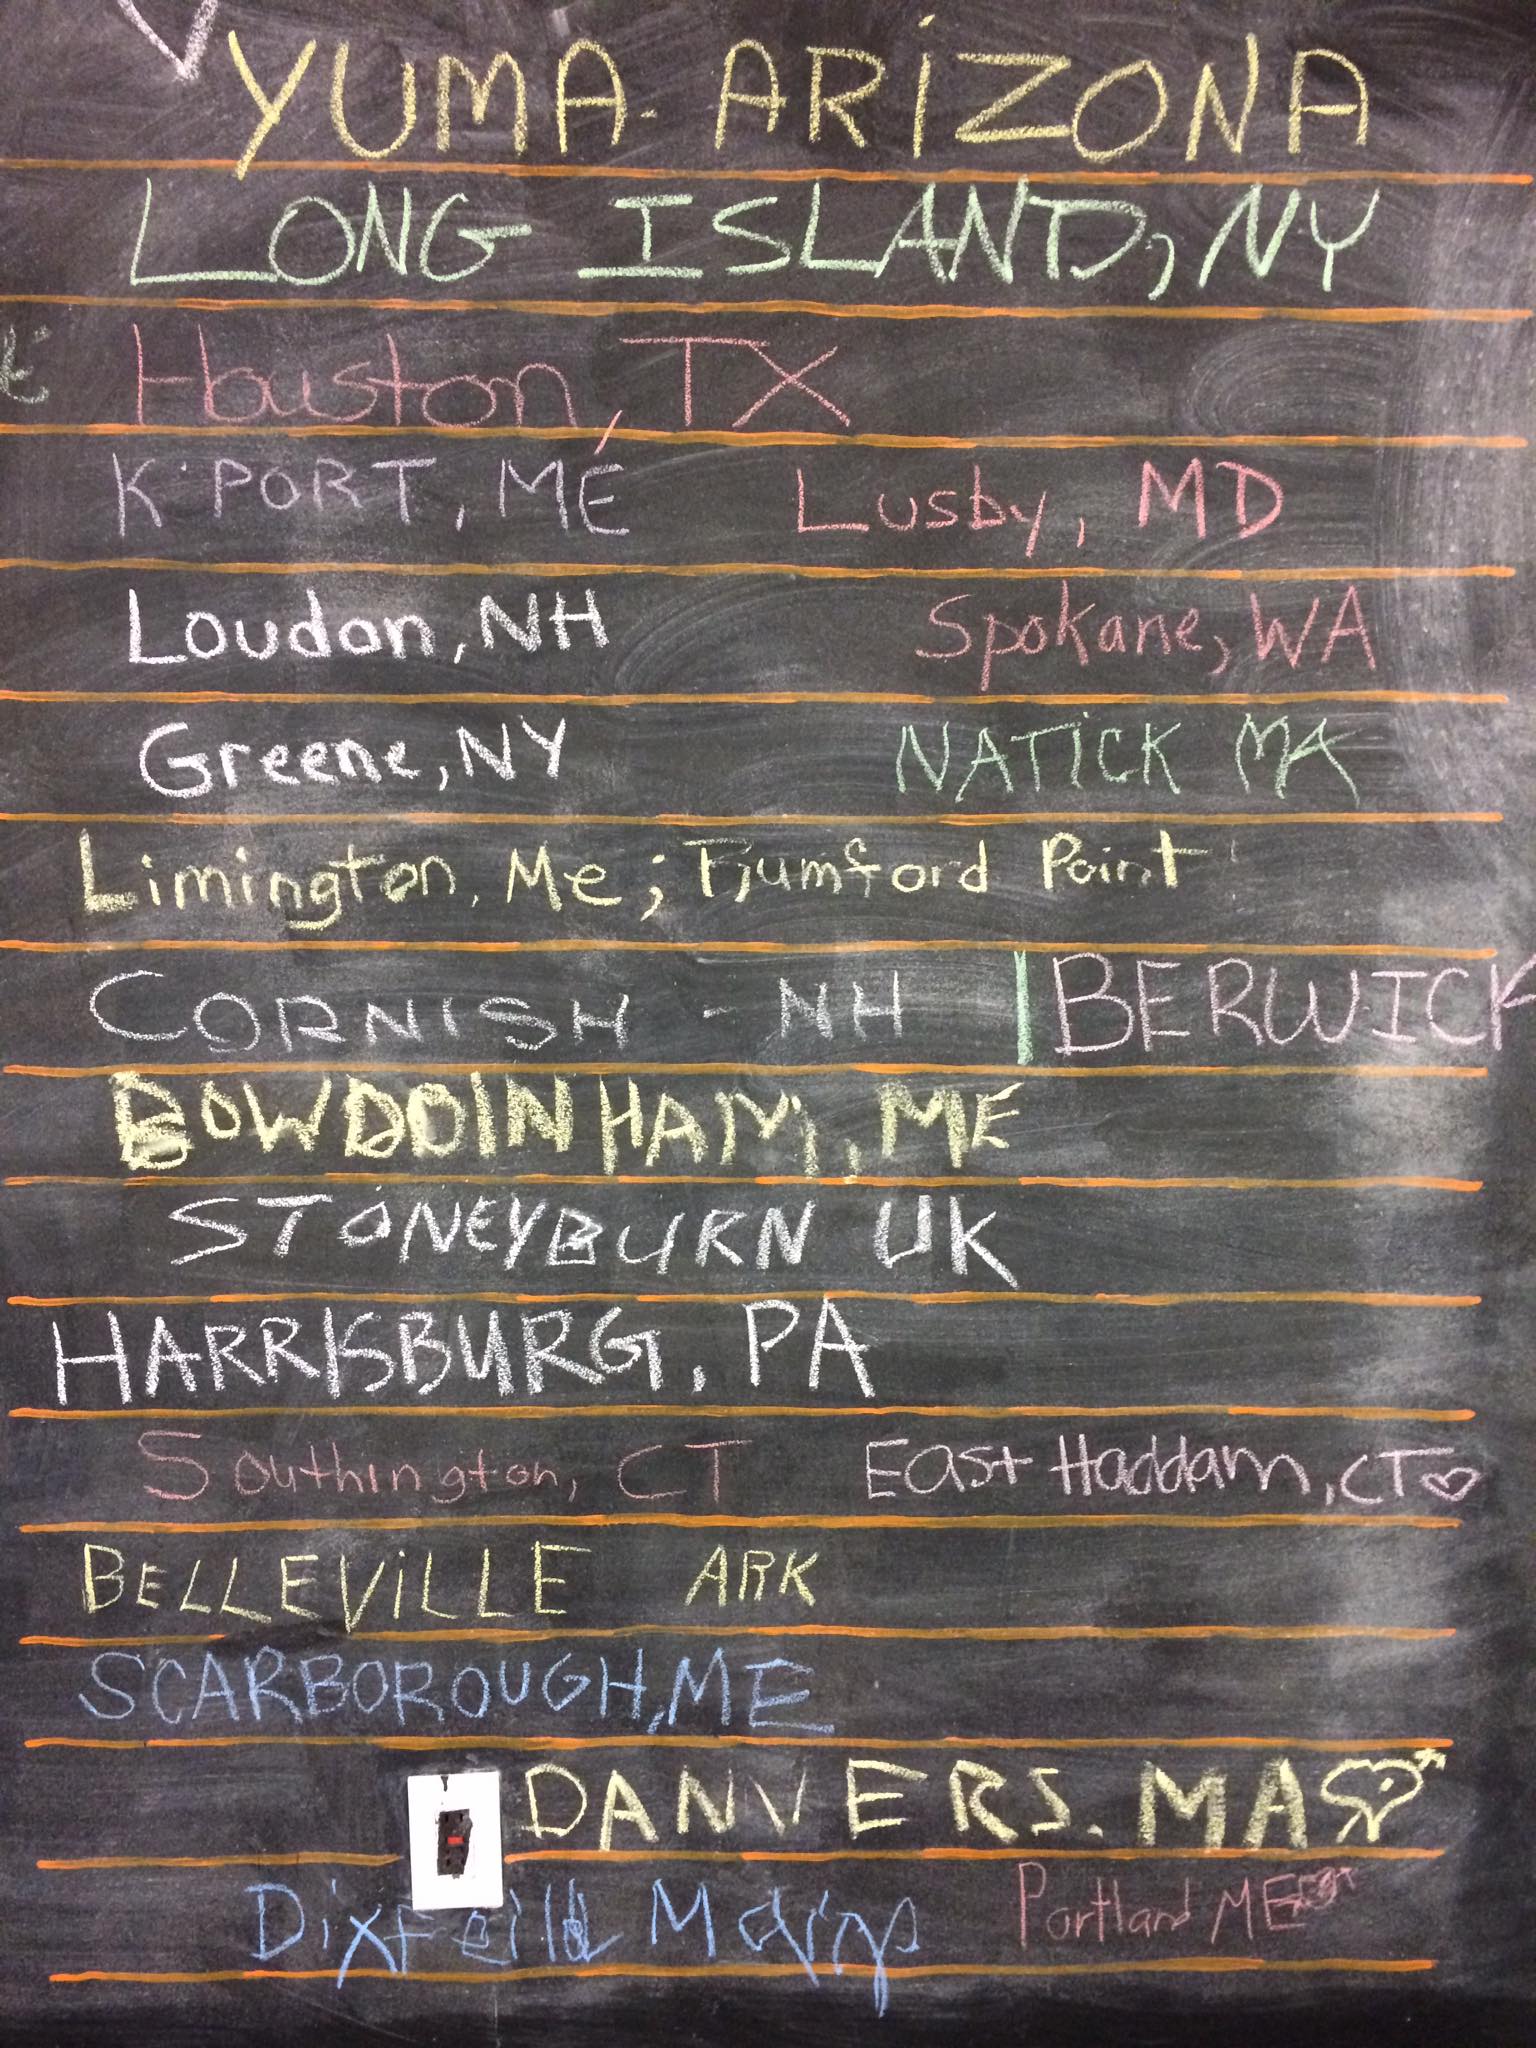 YUMA - ARIZONA
LONG ISLAND, NY
Houston, TX
K'PORT, MÉ Lusby, MD
Loudon, NH Spokane, WA
Greene, NY NATICK MA
Limington, Me; Rumford Point
CORNISH - NH | BERWICK
BOWDOINHAM, ME
STONEYBURN UK
HARRISBURG, PA
Southington, CT East Haddam, CT♡
BELLEVILLE ARK
SCARBOROUGH, ME
DANVERS. MA
Dixfeild Main Portland ME